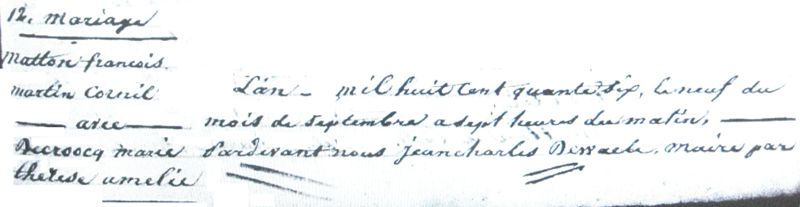 12. mariage
Matton francois.
martin Cornil
avec
Decroocq marie
therese amelie
L'an - mil huit Cent quante six, le neuf du
mois de Septembre a sept heures du matin,
Pardevant nous jean charles Dewaele, maire par